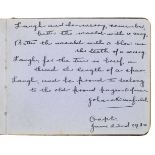 Laugh and be merry, remember,
better the world with a song,
Better the world with a blow in
the teeth of a wrong.
Laugh, for the time is brief, a
thread the length of a span.
Laugh, and be proud to belong
to the old proud pageant of man.
John Masefield.
June 22nd 1930